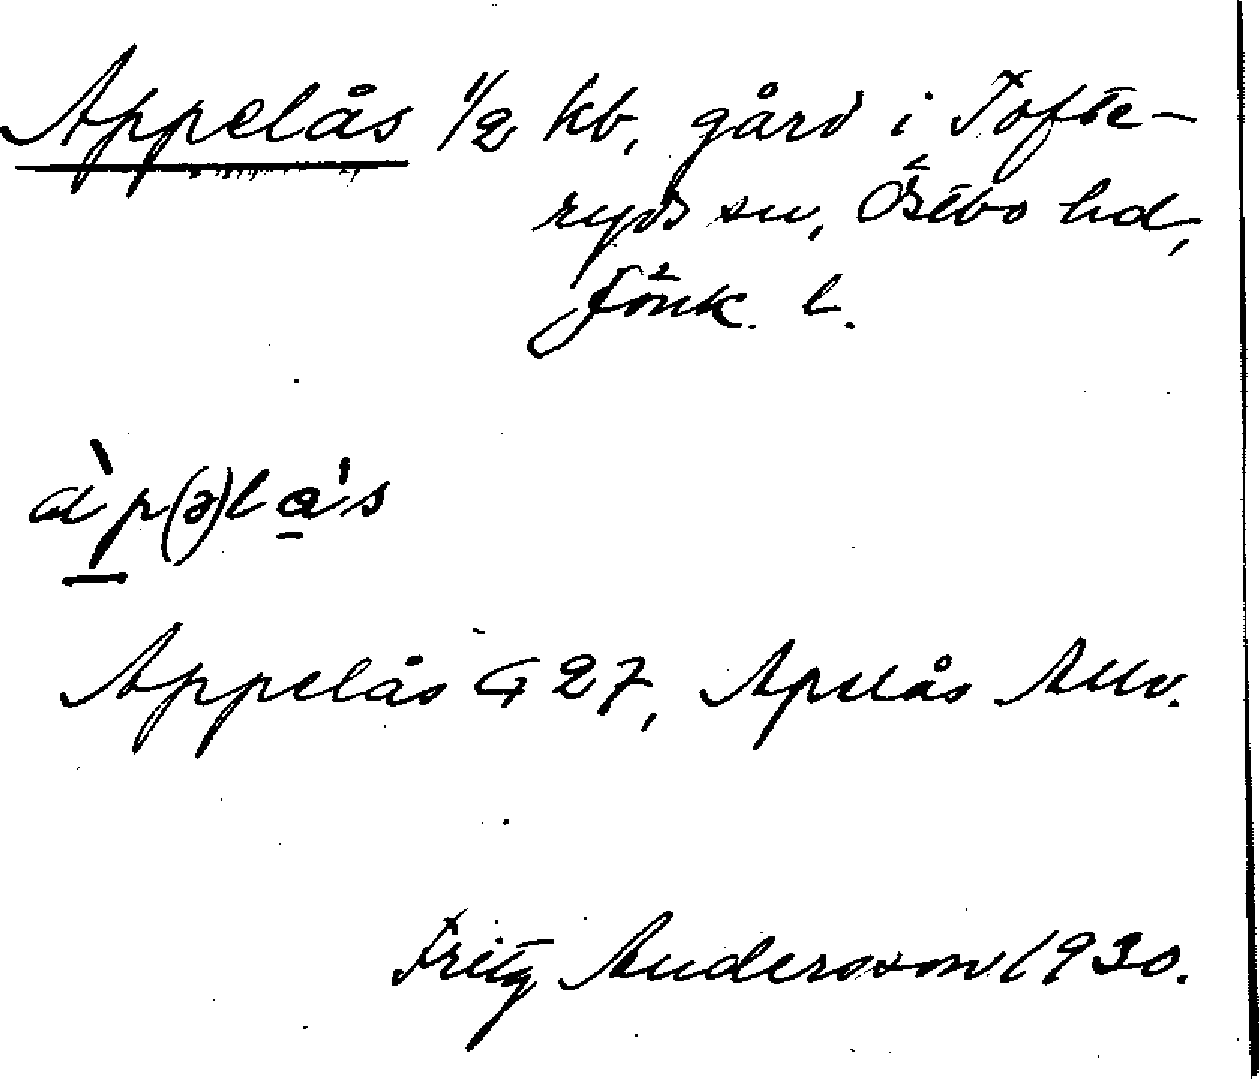 Appelås 1/2 kb, gård i Tofte-
ryds sn, Östbo hd,
Jönk. l.
a̱`p(ə)la̱'s
Appelås G 27, Apelås Allv.
Fritz Andersson 1930.